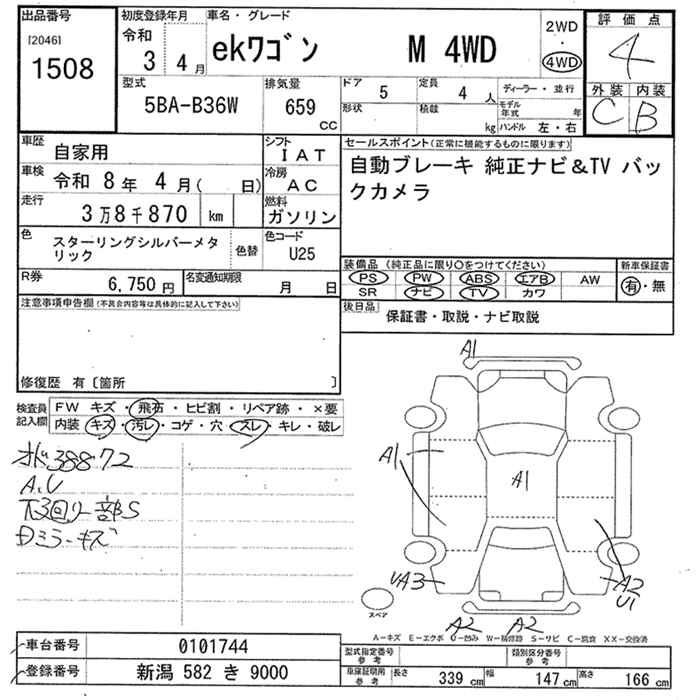 出品番号
[2046]
1508
初度登録年月
令和
3 4 月
車名・グレード
ekワゴン M 4WD
2WD
・
4WD
評価点
4
外装 内装
C B
型式
5BA-B36W
排気量
659
CC
ドア
5
定員
4 人
形状
積載
kg
ディーラー・並行
モデル年式 年
ハンドル 左・右
車歴
自家用
シフト
IAT
車検
令和 8年 4月( 日)
冷房
AC
走行
3万8千870 km
燃料
ガソリン
色
スターリングシルバーメタ
リック
色替
色コード
U25
R券
6,750円
名変通知期限
月 日
セールスポイント(正常に機能するものに限ります)
自動ブレーキ 純正ナビ&TV バッ
クカメラ
装備品 (純正品に限り○をつけてください)
PS PW ABS エアB AW
SR ナビ TV カワ
新車保証書
有・無
後日品
保証書・取説・ナビ取説
注意事項申告欄(不具合内容等は具体的に記入して下さい)
修復歴 有〔箇所 〕
検査員
記入欄
FW キズ・飛石・ヒビ割・リペア跡・×要
内装 キズ・汚レ・コゲ・穴・スレ・キレ・破レ
オド38872
A,U
下回り一部S
Dミラーキズ
A1
A1
A1
UA3
A2
U1
スペア
A2 A2
A-キズ E-エクボ U-凹み W-補修跡 S-サビ C-腐食 XX-交換済
車台番号
0101744
登録番号
新潟 582 き 9000
型式指定番号
参考
類別区分番号
参考
車庫証明用
参考
長さ 339 cm 幅 147 cm 高さ 166 cm